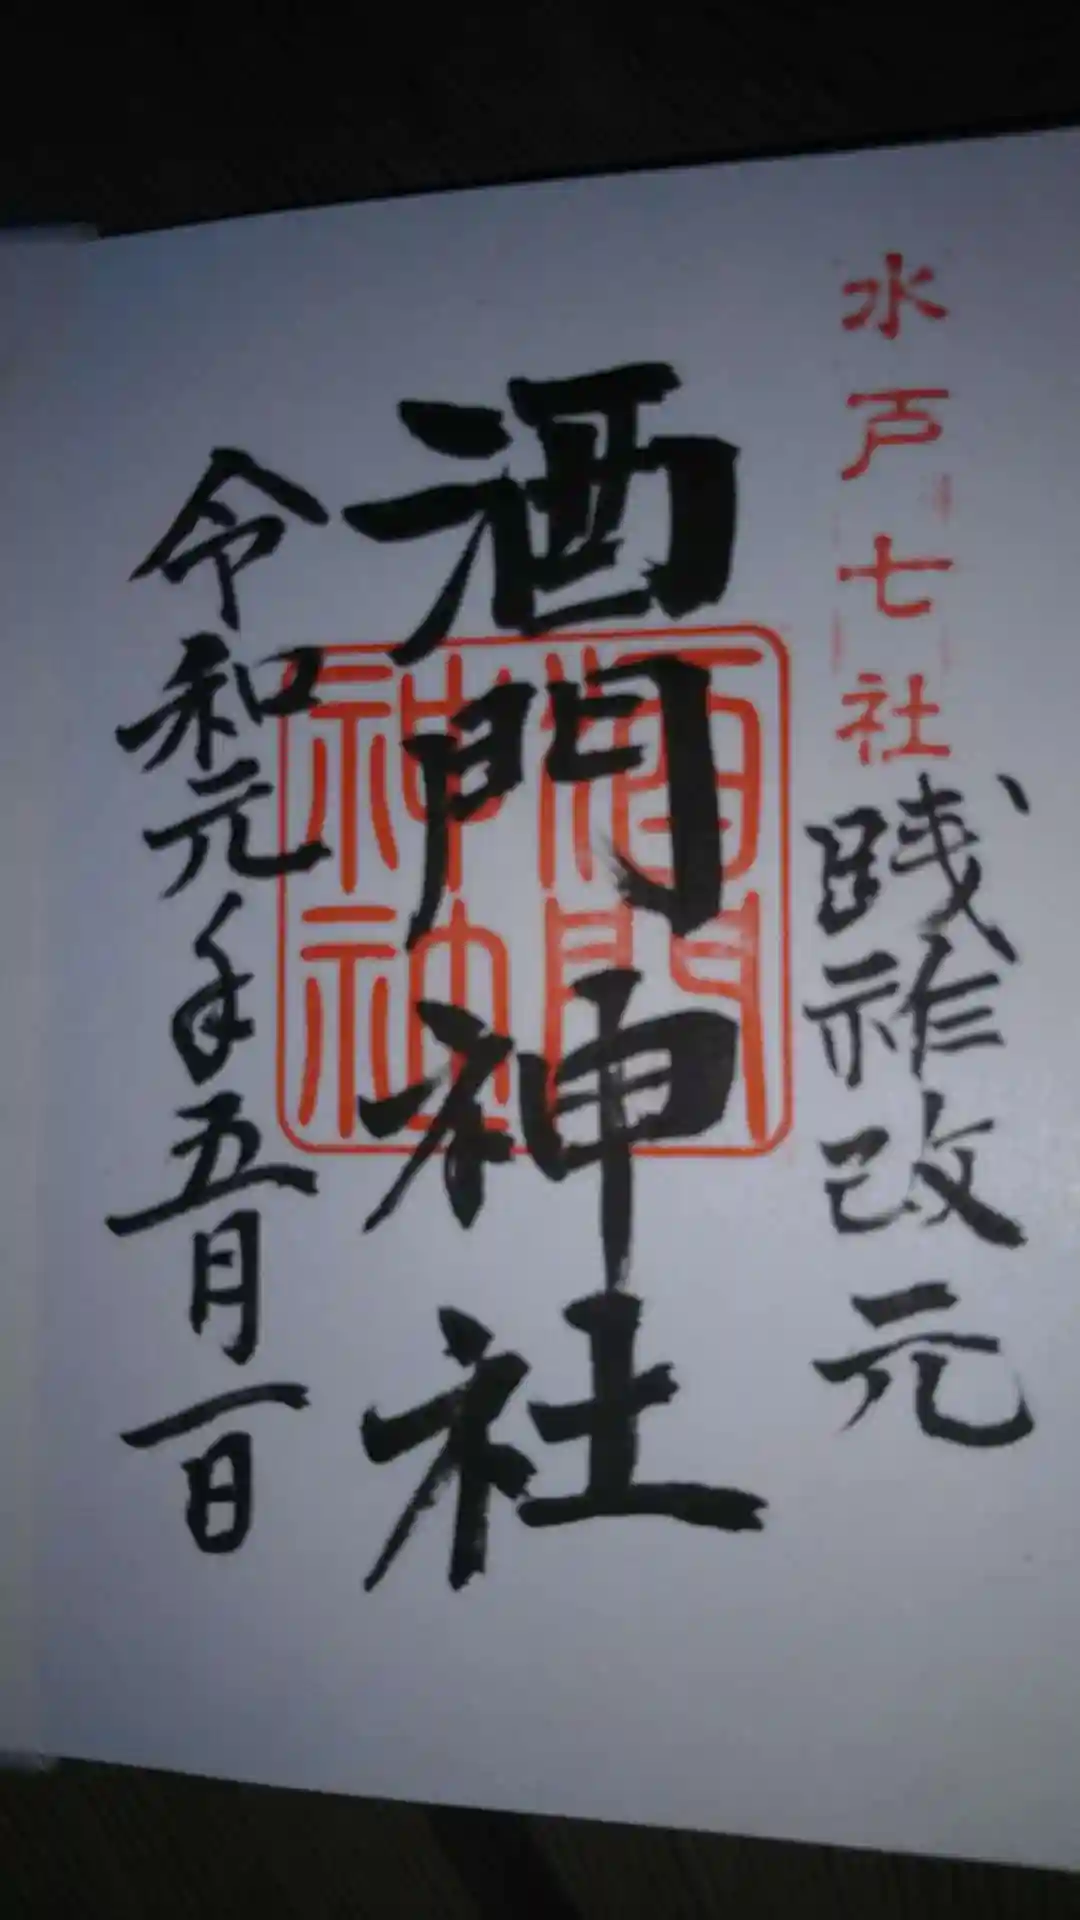 水戸七社
践祚改元
酒門神社
酒門
神社
令和元年五月一日